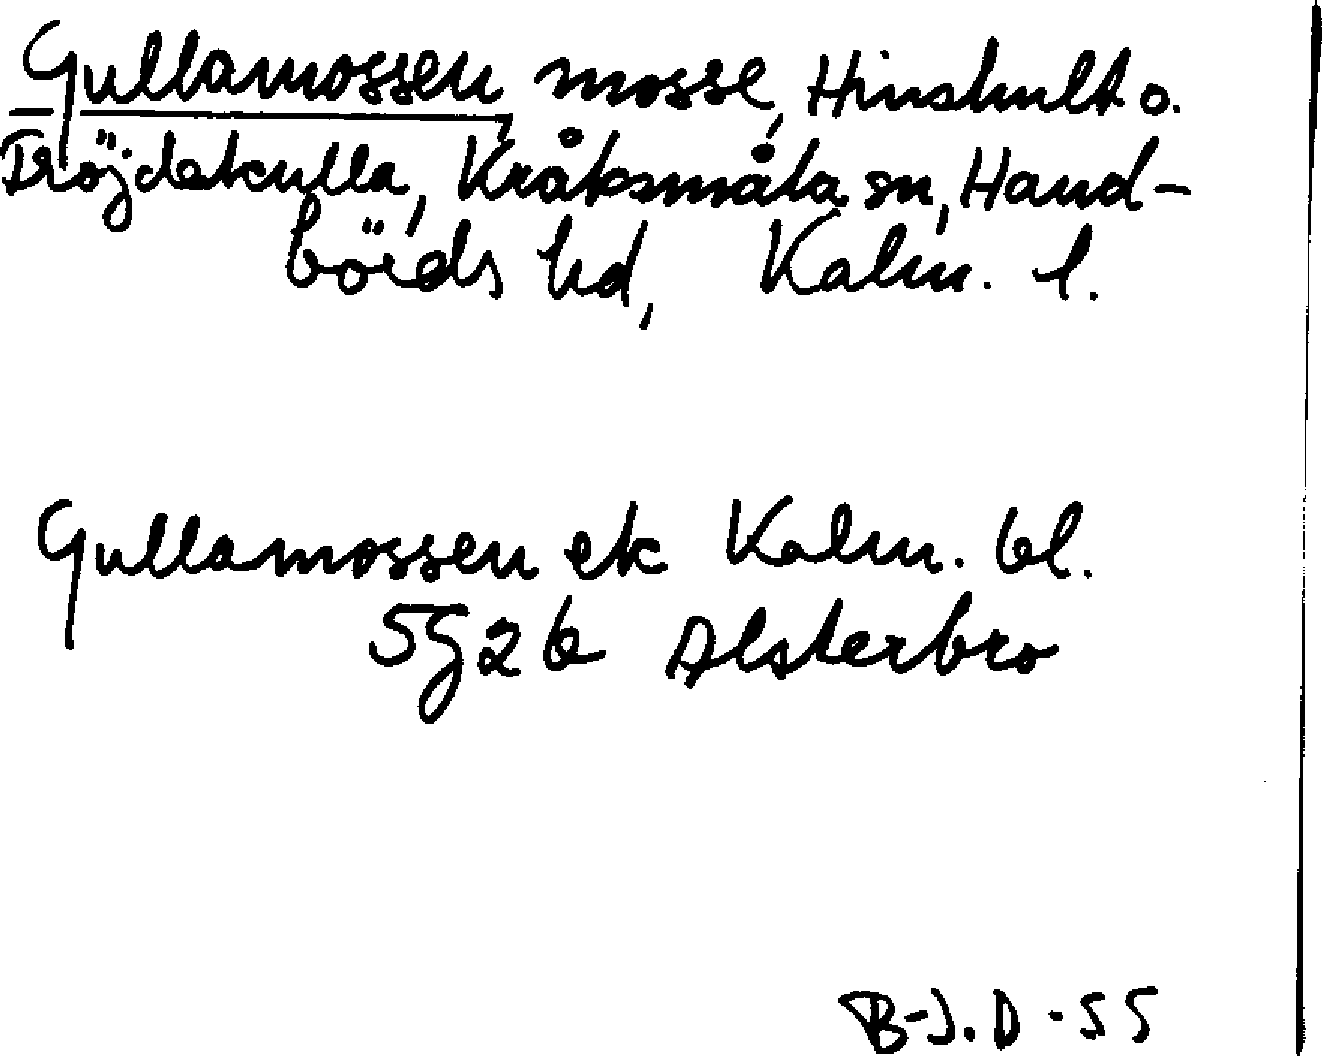 Gullamossen, mosse, Hinshult o.
Tröjdekulla, Kråksmåla sn, Hand-
börds hd, Kalm. l.
Gullamossen ek Kalm. bl.
5g2b Alsterbro
B-J.D-55